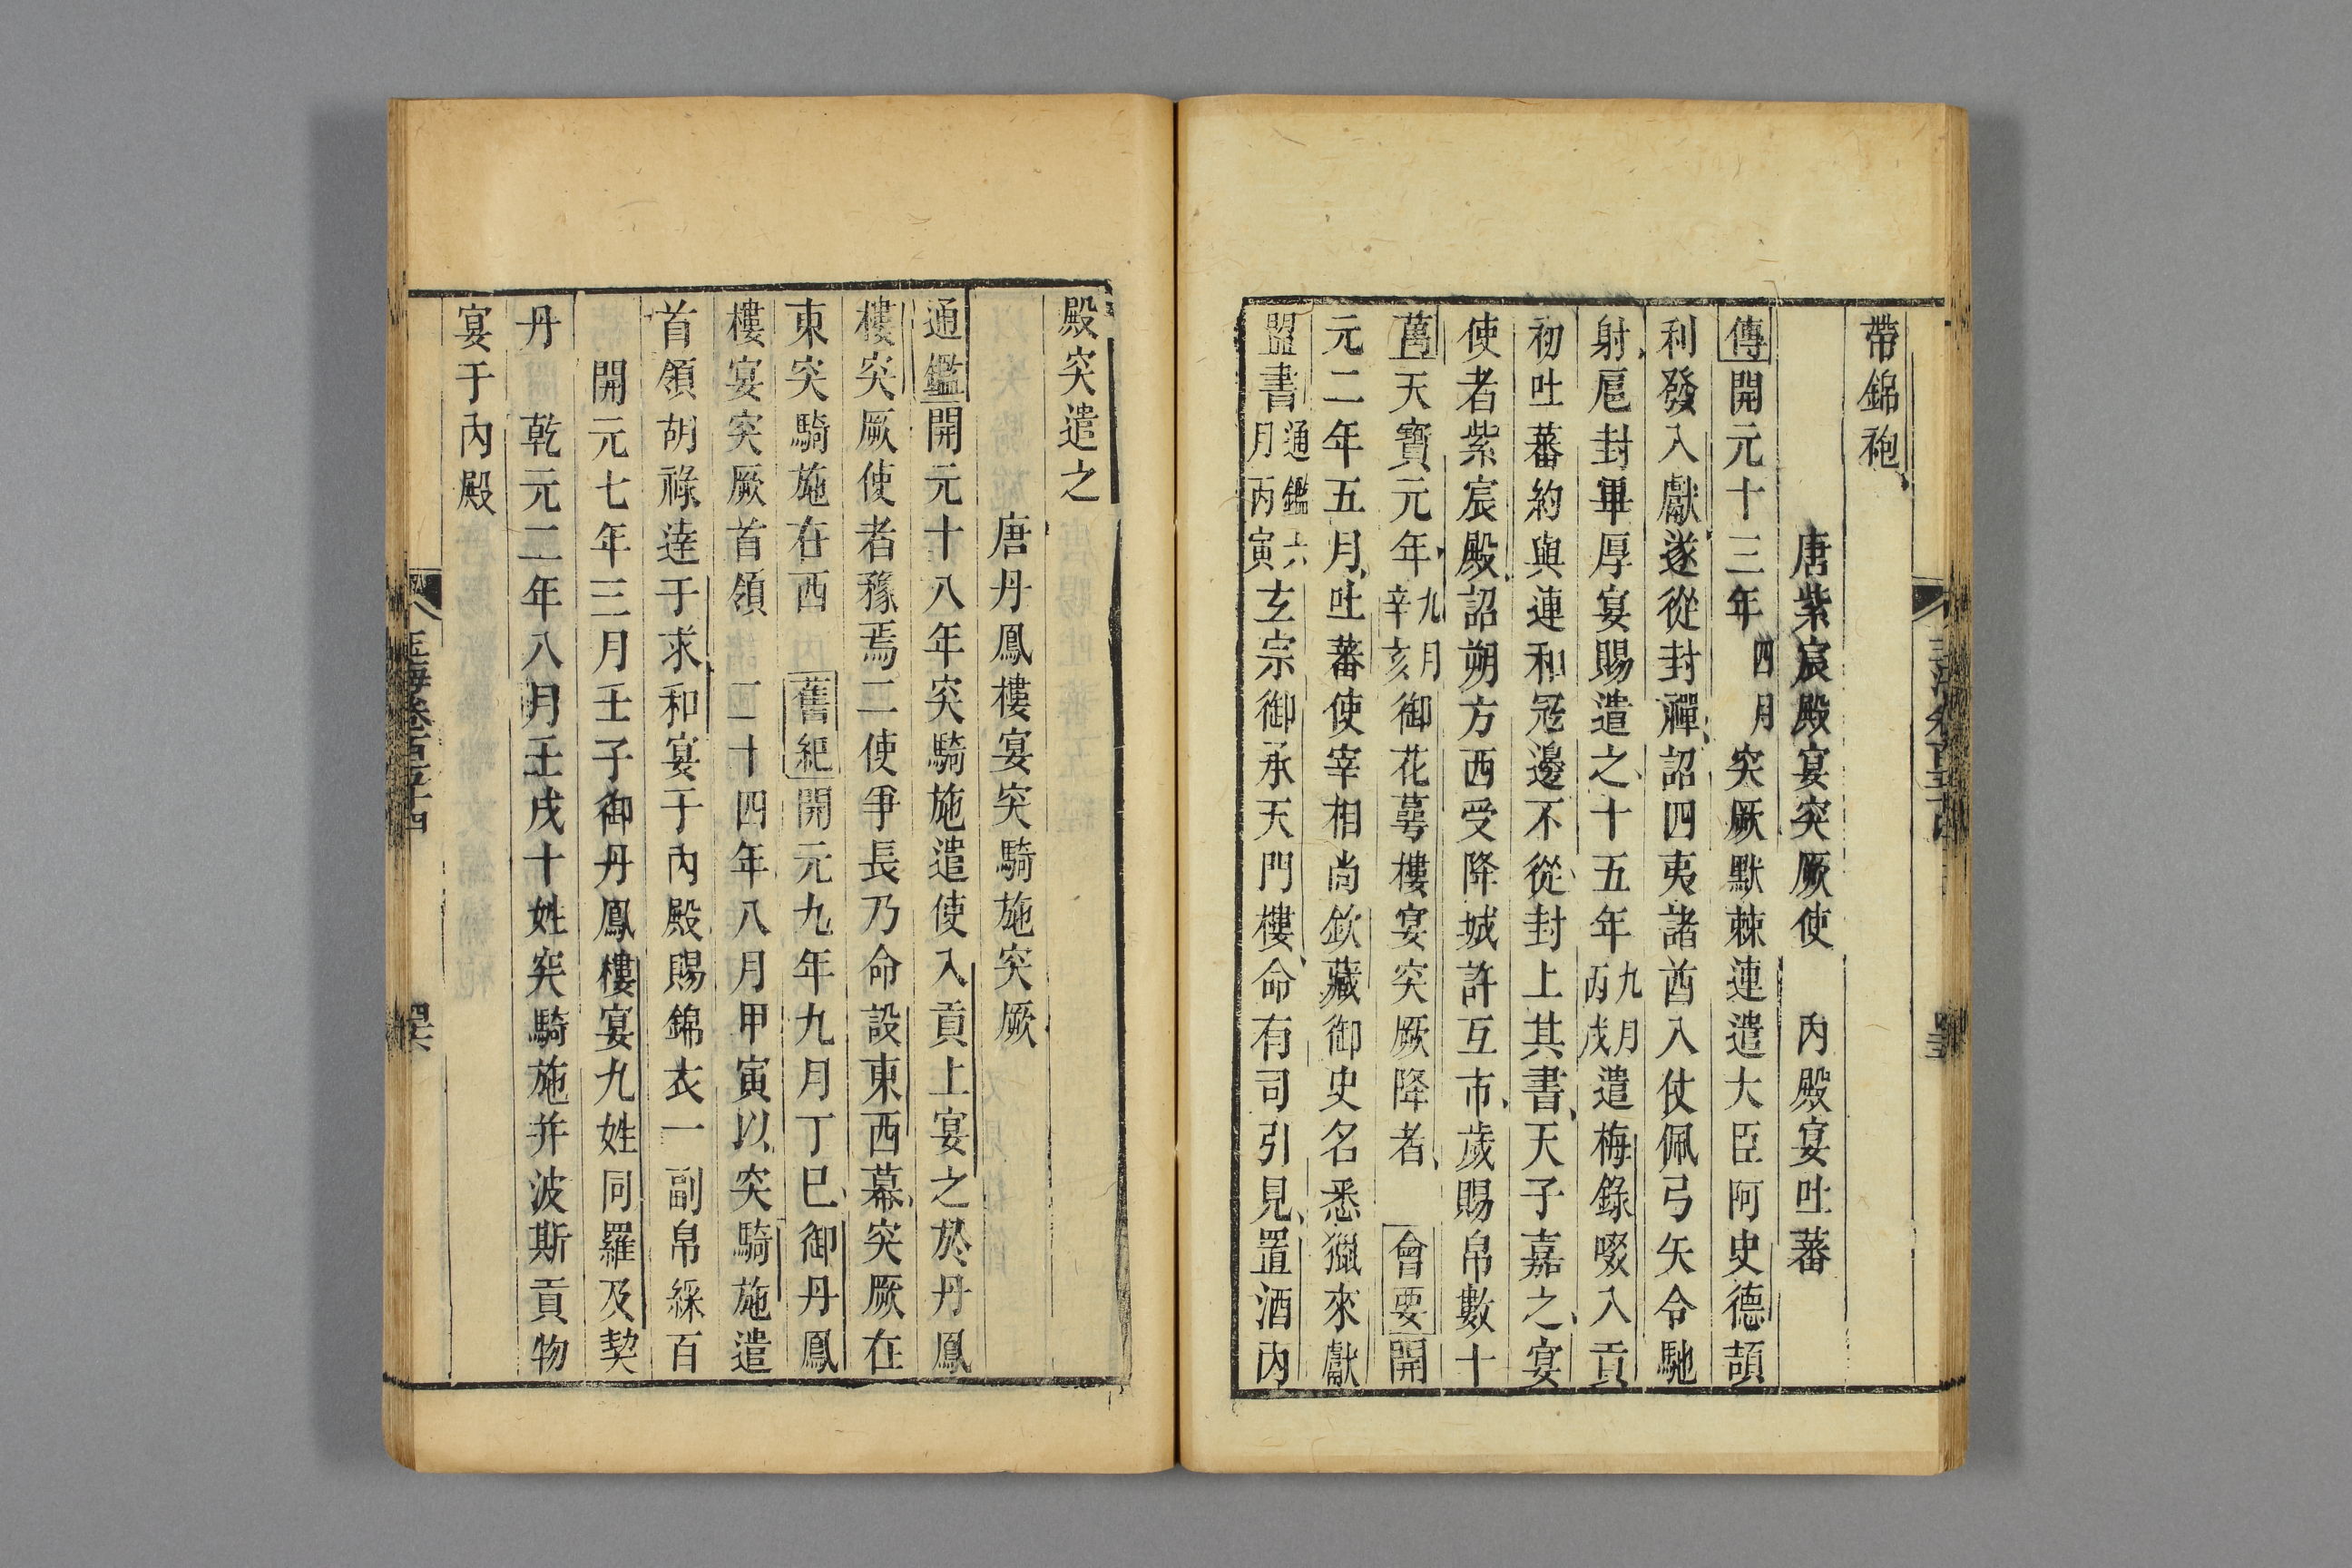 帶錦袍
唐紫宸殿宴突厥使　內殿宴吐蕃
傳開元十三年四月突厥默棘連遣大臣阿史德頡
利發入獻遂從封禪詔四夷諸酋入仗佩弓矢令馳
射扈封畢厚宴賜遣之十五年九月丙戌遣梅錄啜入貢
初吐蕃約與連和㓂邊不從封上其書天子嘉之宴
使者紫宸殿詔朔方西受降城許互市歲賜帛數十
萬天寶元年九月辛亥御花萼樓宴突厥降者　會要開
元二年五月吐蕃使宰相尚欽藏御史名悉獵來獻
盟書通鑑六月丙寅玄宗御承天門樓命有司引見置酒內
殿突遣之
唐丹鳳樓宴突騎施突厥
通鑑開元十八年突騎施遣使入貢上宴之於丹鳳
樓突厥使者豫焉二使爭長乃命設東西幕突厥在
東突騎施在西　舊紀開元九年九月丁巳御丹鳳
樓宴突厥首領　二十四年八月甲寅以突騎施遣
首領胡祿達于求和宴于內殿賜錦衣一副帛綵百
開元七年三月壬子御丹鳳樓宴九姓同羅及契
丹　乾元二年八月壬戌十姓突騎施并波斯貢物
宴于內殿
玉海卷百五十四